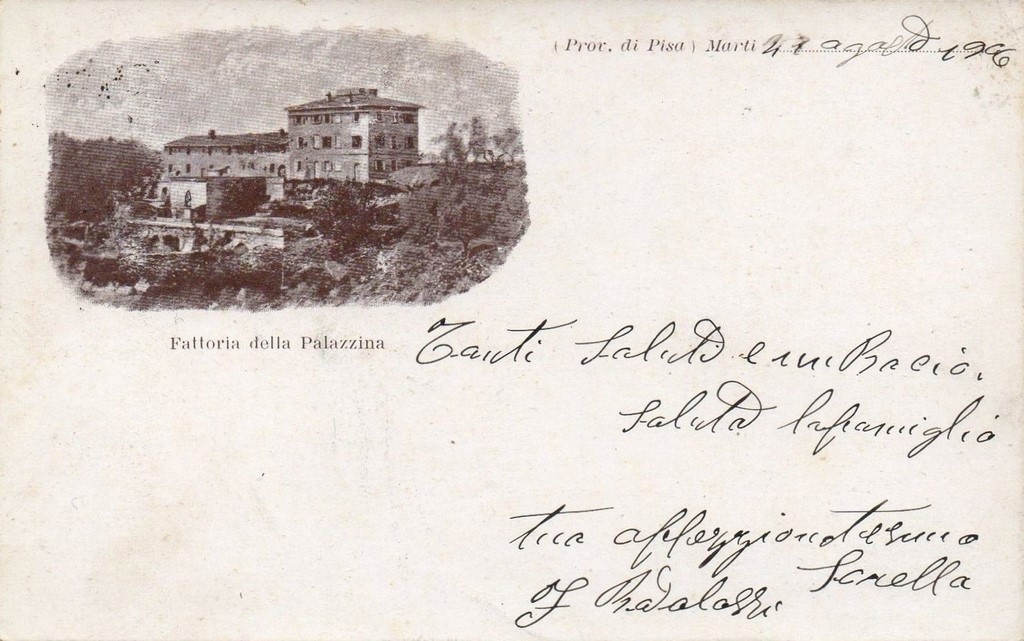 ( Prov. di Pisa ) Marti 21 agosto 1906
Fattoria della Palazzina
Tanti Saluti e un Bacio,
Saluta la famiglia
tua affezzionatissima
Sorella